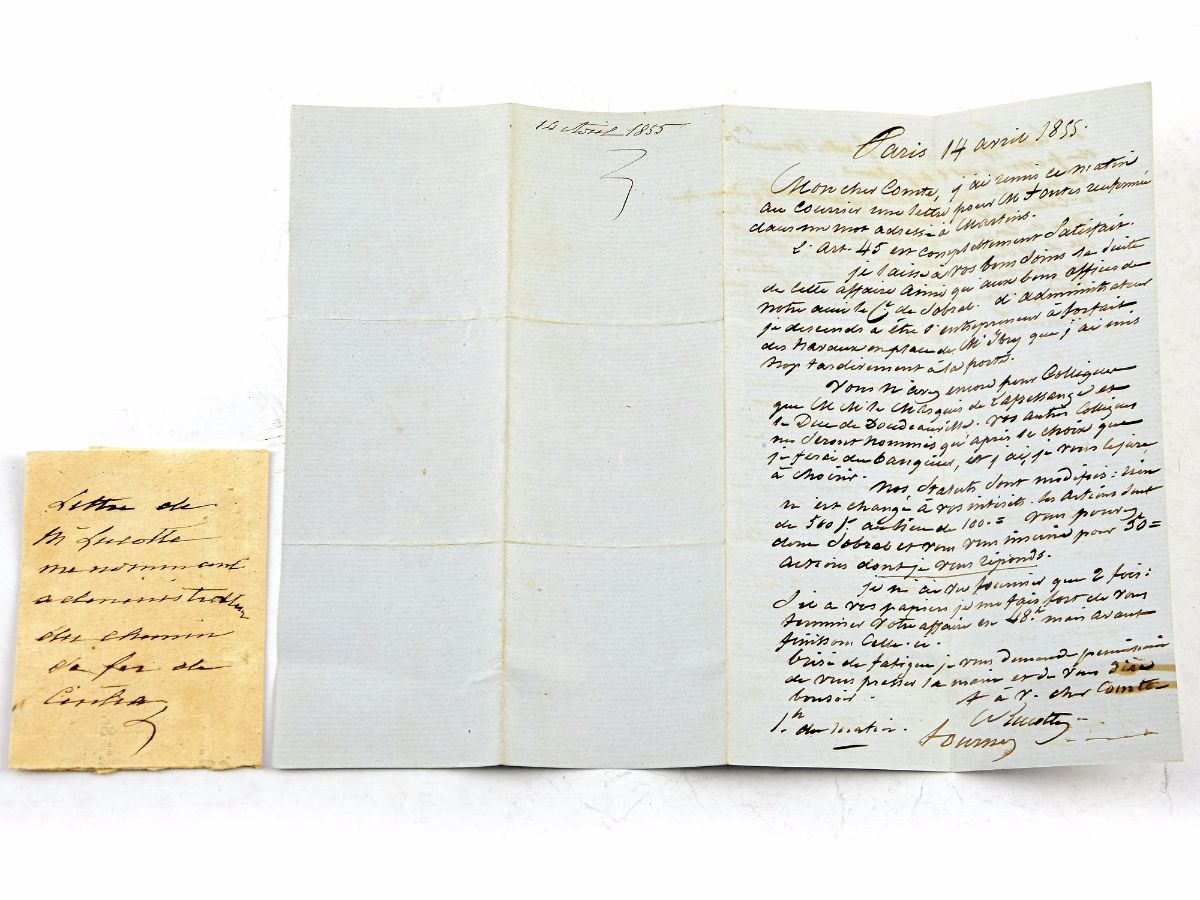 Lettre de
Mr Lucotte
me nommant
administrateur
du chemin
de fer de
Cintra
14 Avril 1855
Paris 14 avril 1855.
Mon cher Comte, j'ai remis ce matin
au courrier une lettre pour M. Fontes renfermée
dans un mot adressé à Martins.
L'Art. 45 est complettement satisfait.
je laisse à vos bons soins la suite
de cette affaire ainsi qu'aux bons offices de
notre ami le Cte de Sobral. d'administrateur
je descends à être l'entrepreneur à forfait
des travaux en place de Mr que j'ai mis
trop tardivement à la porte.
Vous n'avez encore pour Collègues
que M M le Marquis de et
le Duc de Doudeauville. vos autres Collègues
ne seront nommés qu'après le choix que
je ferai du banquier, et j'ai, je vous le jure,
à choisir.
Nos statuts sont modifiés: rien
n'est changé à vos intérêts. les actions sont
de 500 f. au lieu de 100.= Vous pouvez
donc Sobral et vous vous inscrire pour 50=
actions dont je vous réponds.
je n'ai vu fournier que 2 fois:
S'il a vos papiers je me fais fort de vous
terminer votre affaire en 48h mais avant
finissons celle-ci.
brisé de fatigue je vous demande permission
de vous presser la main et de vous dire
bonsoir.
A à v. cher Comte
Lucotte
1h du matin.
tournez